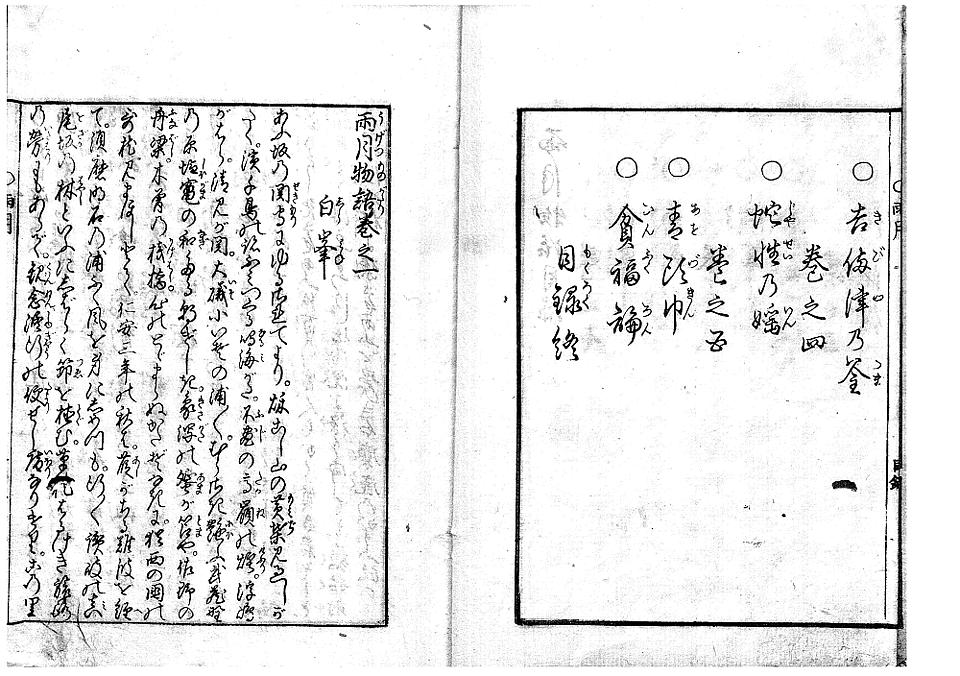 吉備津乃釜
巻之四
蛇性乃婬
巻之五
青頭巾
貧福論
目録終
雨月物語巻之一
白峯
あふ坂の関守にゆるされてより。秋こし山の黄葉見過しが
たく。濱千鳥の跡ふみつくる鳴海がた。不尽の高嶺の煙。浮嶋
がはら。清見が関。大礒小いその浦々。むらさき艶ふ武蔵野
の原。塩竈の和たる朝げしき。象潟の蜑が笘や。佐野の
舟梁。木曽の桟橋。心のとゞまらぬかたぞなきに。猶西の国の
歌枕見まほしとて。仁安三年の秋は。葭がちる難波を経
て。須磨明石の浦ふく風を身にしめつも。行々讃岐の真
尾坂の林といふにしばらく節を植む。草枕はるけき旅路
の労にもあらで。観念修行の便せし庵なりけり。この里